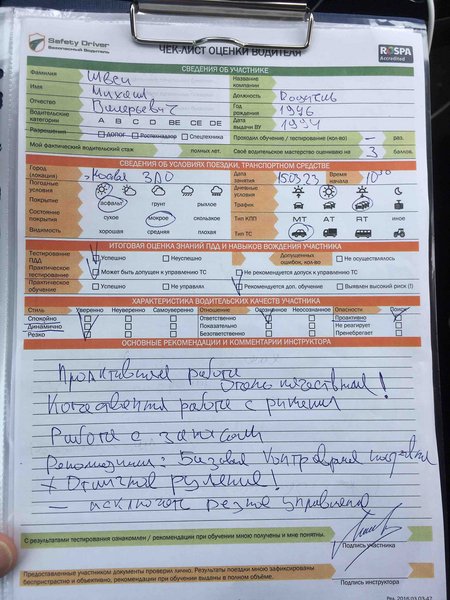 Safety Driver
Безопасный Водитель
ЧЕК-ЛИСТ ОЦЕНКИ ВОДИТЕЛЯ
RoSPA
Accredited
СВЕДЕНИЯ ОБ УЧАСТНИКЕ
Фамилия Швец Название компании
Имя Михаил Должность Водитель
Отчество Валерьевич Год рождения 1976
Водительские категории A B C D BE CE DE Дата выдачи ВУ 1994
Разрешения ДОПОГ Ространнадзор Спецтехника Проходил обучение / тестирование (кол-во) – раз.
Мой фактический водительский стаж полных лет. Своё водительское мастерство оцениваю на 3 баллов.
СВЕДЕНИЯ ОБ УСЛОВИЯХ ПОЕЗДКИ, ТРАНСПОРТНОМ СРЕДСТВЕ
Город (локация) Москва ЗАО Дата занятия 150323 Время начала 10 30
Погодные условия Дневные условия
Покрытие асфальт грунт рыхлое Трафик
Состояние покрытия сухое мокрое скользкое Тип КПП MT AT RT иное
Видимость хорошая средняя плохая Тип ТС
ИТОГОВАЯ ОЦЕНКА ЗНАНИЙ ПДД И НАВЫКОВ ВОЖДЕНИЯ УЧАСТНИКА
Тестирование ПДД Успешно Неуспешно Допущенных ошибок, кол-во Не осуществлялось
Практическое тестирование Может быть допущен к управлению ТС Не рекомендуется допуск к управлению ТС
Практическое обучение Успешно Не управлял Рекомендуется доп. обучение Выявлен высокий риск (!)
ХАРАКТЕРИСТИКА ВОДИТЕЛЬСКИХ КАЧЕСТВ УЧАСТНИКА
Стиль Уверенно Неуверенно Самоуверенно Отношение Осознанное Неосознанное Опасности Поиск
Спокойно Ответственно Проактивно
Динамично Показательно Не реагирует
Резко Безответственно Пренебрегает
ОСНОВНЫЕ РЕКОМЕНДАЦИИ И КОММЕНТАРИИ ИНСТРУКТОРА
работа
Качественная работа с
Работа с
Рекомендации: Базовая Контраварийная подготовка
+ Отличное руление!
– исключать резкое управление
С результатами тестирования ознакомлен / рекомендации при обучении мною получены и мне понятны.
Подпись участника
Предоставленные участником документы проверил лично. Результаты поездки мною зафиксированы
беспристрастно и объективно, рекомендации при обучении выданы в полном объёме.
Подпись инструктора